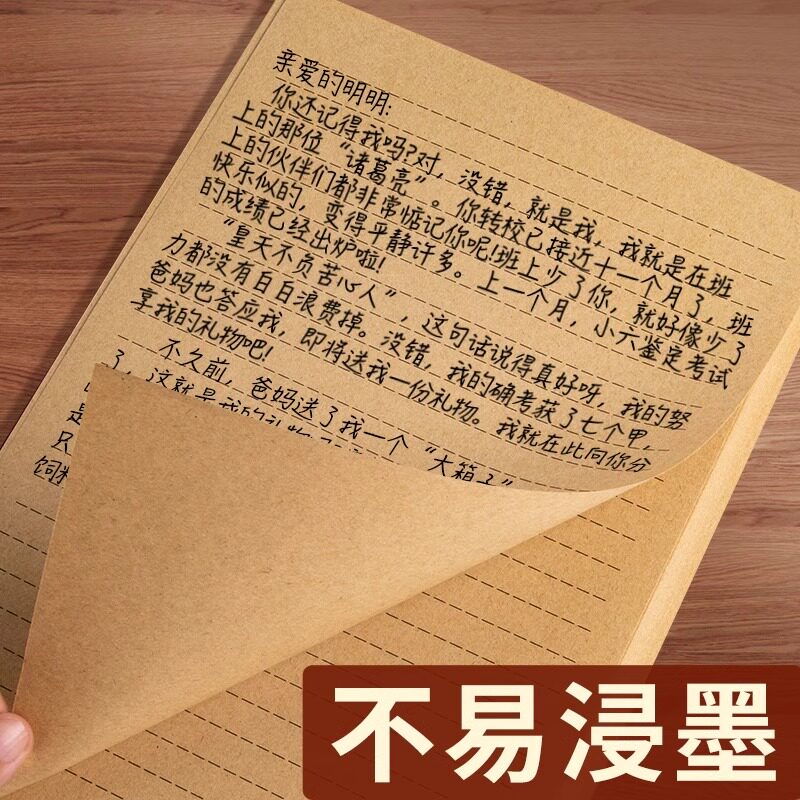 亲爱的明明:
你还记得我吗?对，没错，就是我，我就是在班
上的那位“诸葛亮”。你转校已接近十一个月了，班
上的伙伴们都非常惦记你呢!班上少了你，就好像少了
快乐似的，变得平静许多。上一个月，小六鉴定考试
的成绩已经出炉啦!
“皇天不负苦心人”，这句话说得真好呀，我的努
力都没有白白浪费掉。没错，我的确考获了七个甲，
爸妈也答应我，即将送我一份礼物。我就在此向你分
享我的礼物吧!
不久前，爸妈送了我一个“大箱子”
了，这就是我的礼物
是
只
饲料
不易浸墨